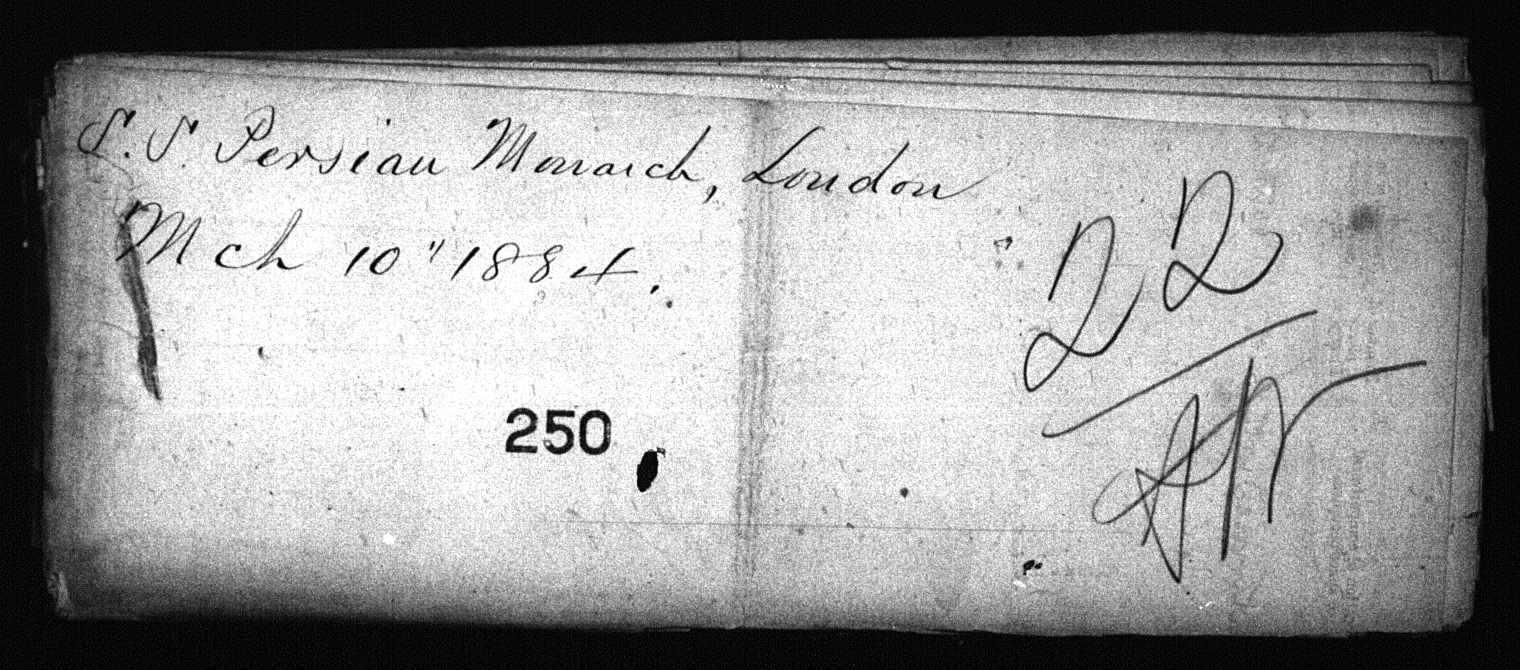 S.S. Persian Monarch, London
Mch 10" 1884.
22
250